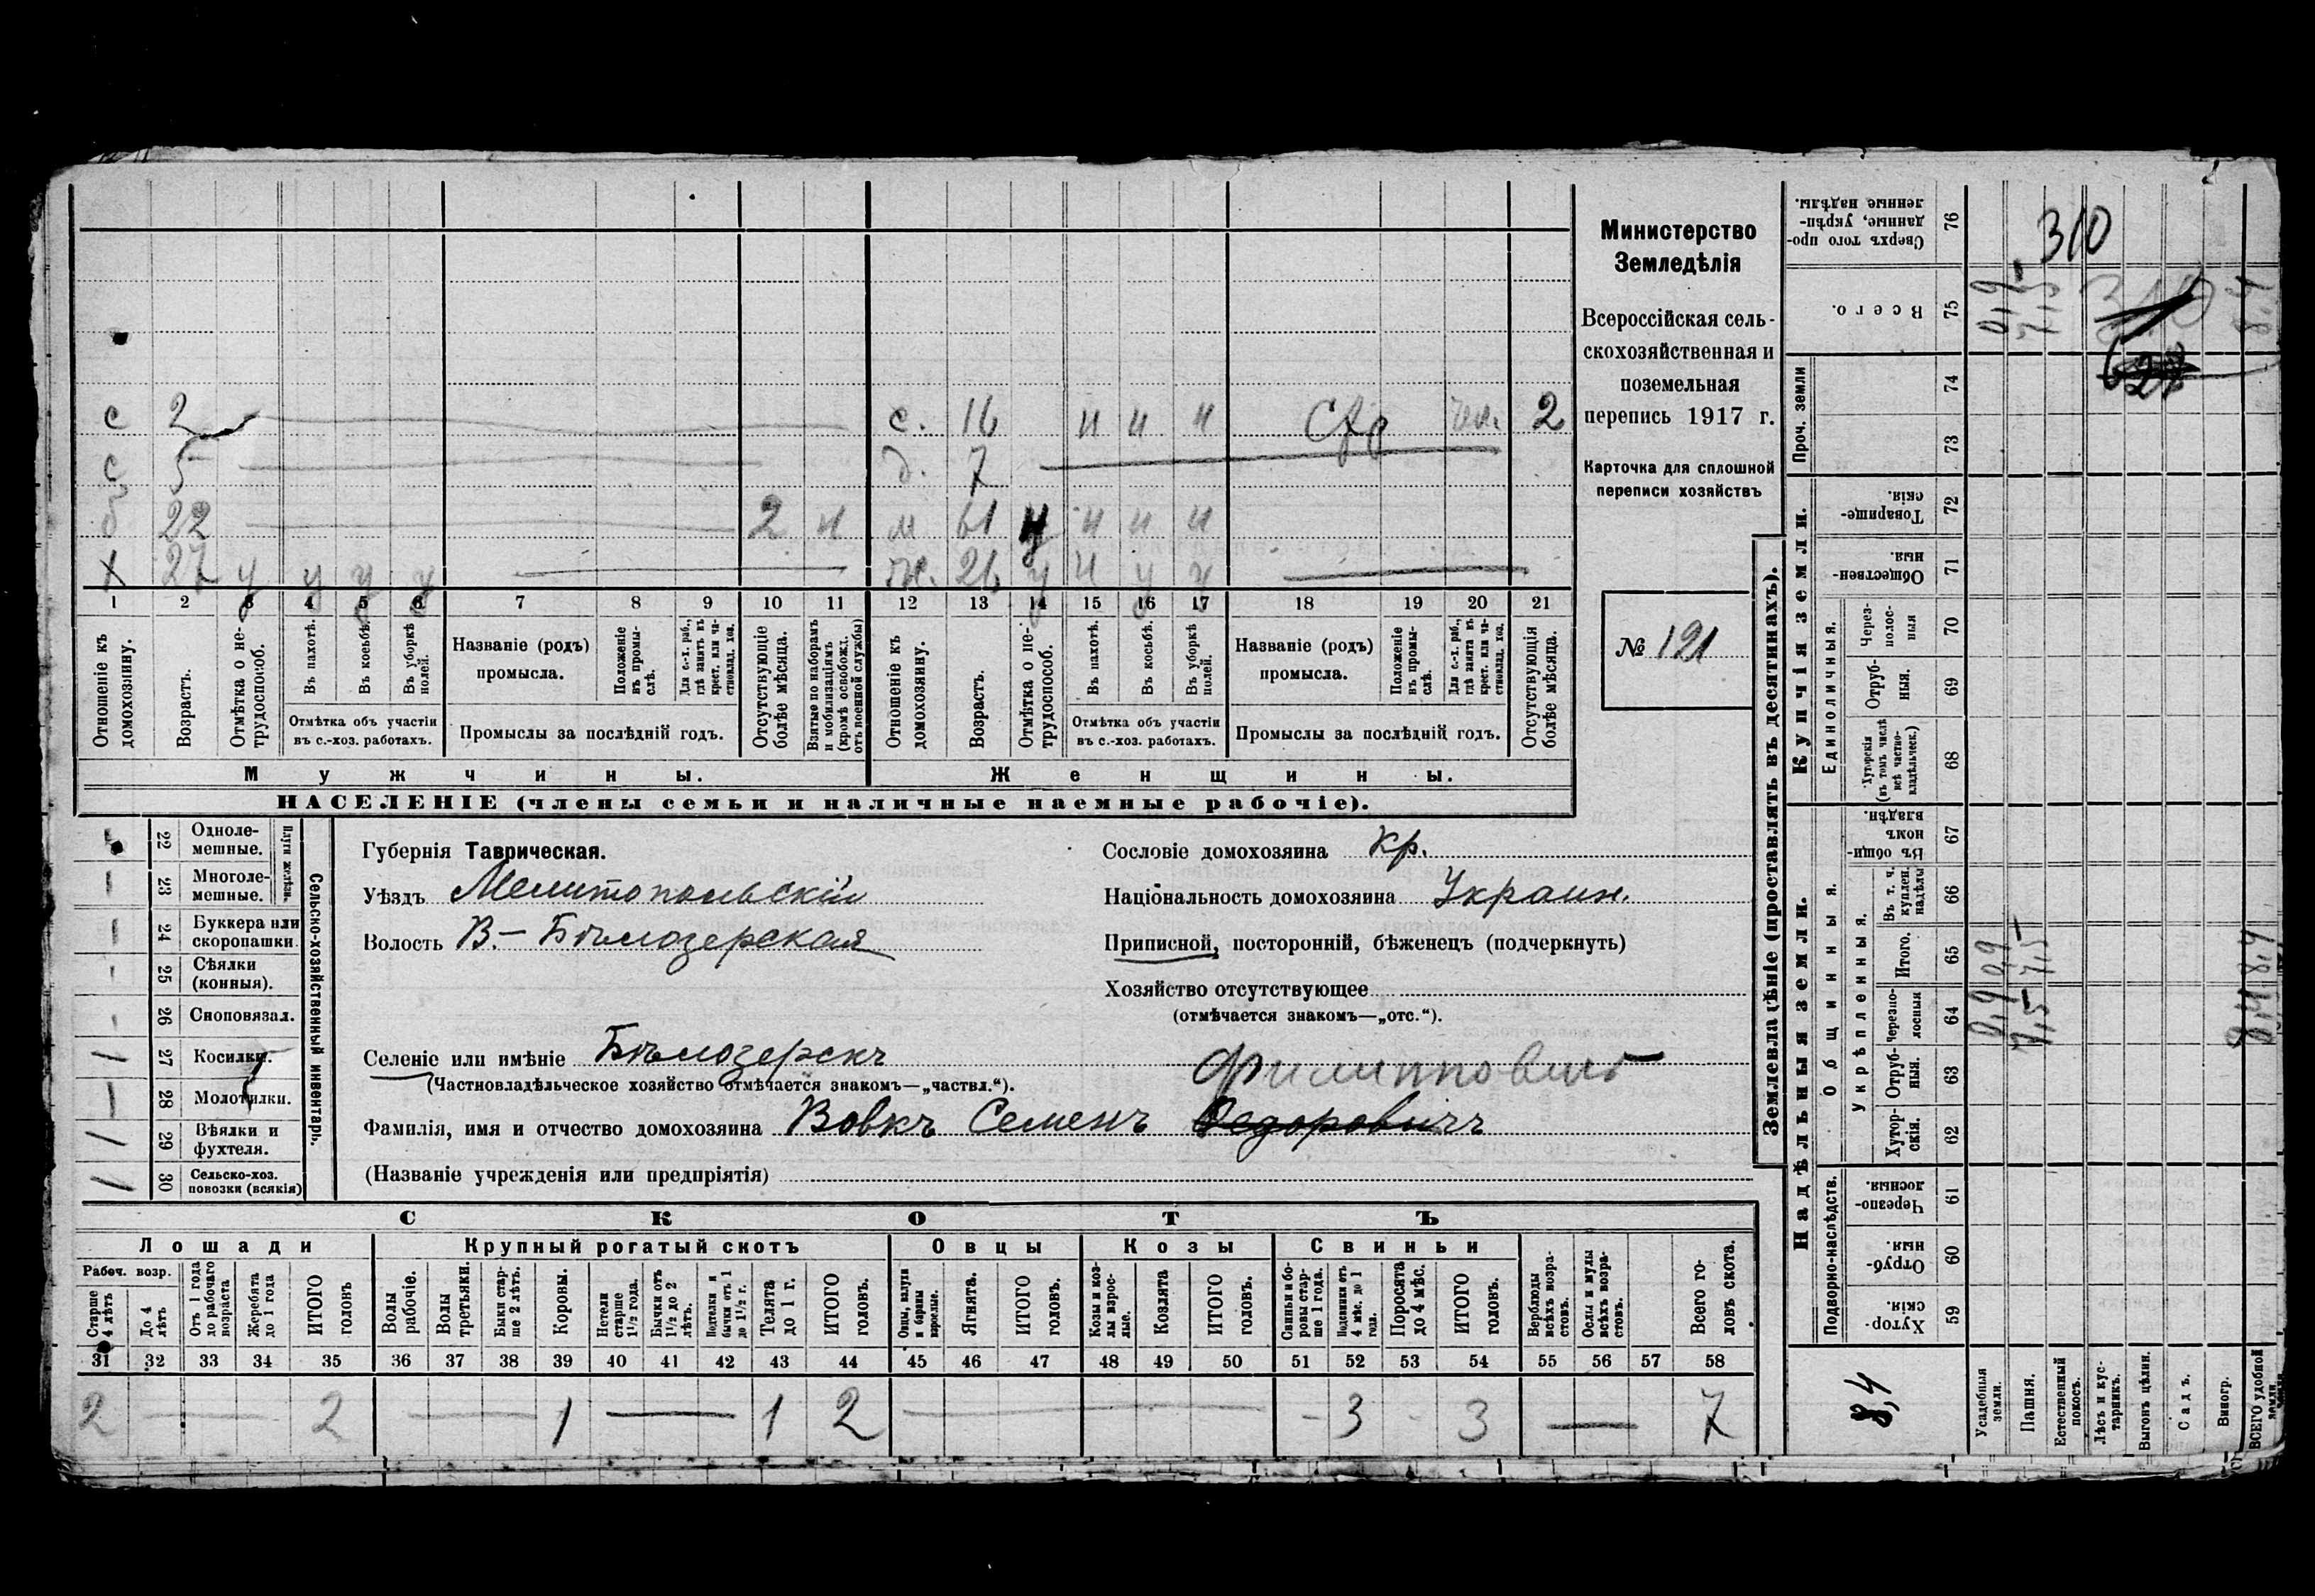 Министерство
Земледѣлія
Всероссійская сель-
скохозяйственная и
поземельная
перепись 1917 г.
Карточка для сплошной
переписи хозяйствъ
№ 121
с 2
с 5
б 22 2 н
х 27 у у у у
с. 16 н н н 2
д. 7
м 61 н н н
ж. 26 у н у у
1 2 3 4 5 6 7 8 9 10 11 12 13 14 15 16 17 18 19 20 21
Отношеніе къ домохозяину.
Возрастъ.
Отмѣтка о не-трудоспособ.
Въ пахотѣ.
Въ косьбѣ.
Въ уборкѣ полей.
Отмѣтка объ участіи
въ с.-хоз. работахъ.
Названіе (родъ)
промысла.
Положеніе въ промы-слѣ.
Для с.-х. раб., гдѣ занятъ въ крест. или ча-стновлад. хоз.
Промыслы за послѣдній годъ.
Отсутствующіе болѣе мѣсяца.
Взятые по наборамъ и мобилизаціямъ (кромѣ освобож. отъ военной службы)
Отношеніе къ домохозяину.
Возрастъ.
Отмѣтка о не-трудоспособ.
Въ пахотѣ.
Въ косьбѣ.
Въ уборкѣ полей.
Отмѣтка объ участіи
въ с.-хоз. работахъ.
Названіе (родъ)
промысла.
Положеніе въ промы-слѣ.
Для с.-х. раб., гдѣ занята въ крест. или ча-стновлад. хоз.
Промыслы за послѣдній годъ.
Отсутствующія болѣе мѣсяца.
Мужчины.
Женщины.
НАСЕЛЕНІЕ (члены семьи и наличные наемные рабочіе).
Сельско-хозяйственный инвентарь.
Плуги желѣзн.
22 Одноле-мешные.
23 Многоле-мешные.
24 Буккера или скоропашки.
25 Сѣялки (конныя).
26 Сноповязал.
27 Косилки.
28 Молотилки.
29 Вѣялки и фухтеля.
30 Сельско-хоз. повозки (всякія)
Губернія Таврическая.
Уѣздъ Мелитопольскій
Волость В.-Бѣлозерская
Селеніе или имѣніе Бѣлозерскъ
(Частновладѣльческое хозяйство отмѣчается знакомъ—„частвл.“).
Сословіе домохозяина кр.
Національность домохозяина Украин.
Приписной, посторонній, бѣженецъ (подчеркнуть)
Хозяйство отсутствующее
(отмѣчается знакомъ—„отс.“).
Филиппович
Фамилія, имя и отчество домохозяина Вовкъ Семенъ Ѳедоровичъ
(Названіе учрежденія или предпріятія)
СКОТЪ
Лошади
Крупный рогатый скотъ
Овцы
Козы
Свиньи
Рабоч. возр.
Старше 4 лѣтъ
До 4 лѣтъ
Отъ 1 года до рабочаго возраста
Жеребята до 1 года
ИТОГО головъ
Волы рабочіе.
Волы третьяки.
Быки стар-ше 2 лѣтъ.
Коровы.
Нетели старше 1 1/2 года.
Бычки отъ 1 1/2 до 2 лѣтъ.
Подтелки и бычки отъ 1 до 1 1/2 г.
Телята до 1 г.
ИТОГО головъ.
Овцы, валухи и бараны взрослые.
Ягнята.
ИТОГО головъ.
Козы и коз-лы взрос-лые.
Козлята
ИТОГО головъ.
Свиньи и бо-ровы стар-ше 1 года.
Подсвинки отъ 4 мѣс. до 1 года.
Поросята до 4 мѣс.
ИТОГО головъ.
Верблюды всѣхъ возра-стовъ.
Ослы и мулы всѣхъ возра-стовъ.
Всего го-ловъ скота.
31 32 33 34 35 36 37 38 39 40 41 42 43 44 45 46 47 48 49 50 51 52 53 54 55 56 57 58
2 — 2 — 1 — 1 2 — 3 - 3 — 7
Землевладѣніе (проставлять въ десятинахъ).
Надѣльныя земли.
Купчія земли.
Проч. земли
Подворно-наслѣдств.
Общинныя.
Укрѣпленныя.
Единоличныя.
Хутор-скія. 59
Отруб-ныя. 60
Черезпо-лосныя. 61
Хутор-скія. 62
Отруб-ныя. 63
Черезпо-лосныя 64
Итого. 65
Въ т. ч. куплен. надѣлы 66
Въ общин-номъ владѣн. 67
Хуторскія (въ томъ числѣ всѣ частно-владѣльческ.) 68
Отруб-ныя. 69
Через-полос-ныя 70
Обществен-ныя. 71
Товарище-скія. 72
73
74
Всего. 75
Сверхъ того про-данные, укрѣп-ленные надѣлы. 76
Усадебныя земли.
Пашня.
Естественный покосъ.
Лѣсъ и кус-тарникъ.
Выгонъ цѣлин.
Садъ.
Виногр.
ВСЕГО удобной земли
8,4
0,9 0,9 0,9
7,5 7,5 7,5
8,4 8,4 8,4
310